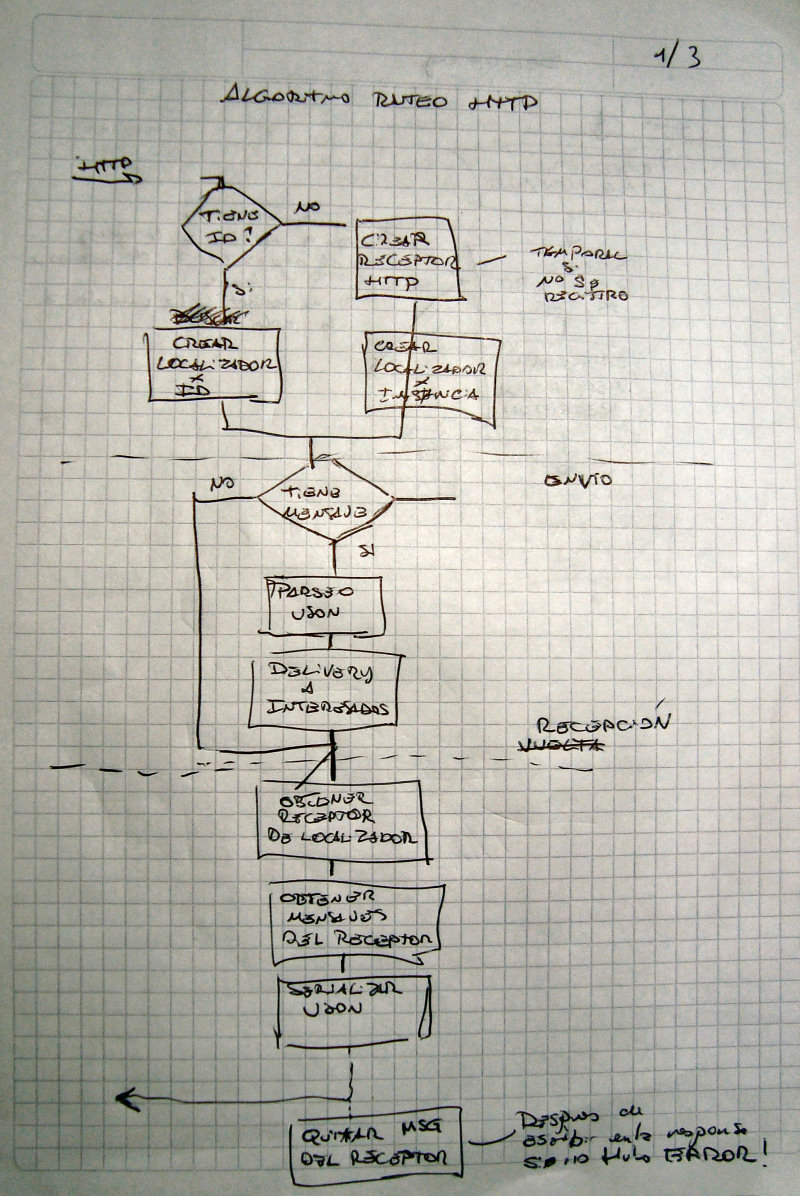 1/3
ALGORITMO RUTEO HTTP
HTTP
TIENE
ID?
NO
SI
CREAR
RECEPTOR
HTTP
TEMPORAL
SI
NO SE
REGISTRO
CREAR
LOCALIZADOR
X
ID
CREAR
LOCALIZADOR
X
INSTANCIA
ENVIO
TIENE
MENSAJE
NO
SI
PARSEO
JSON
DELIVERY
A
INTERESADOS
RECEPCIÓN
VUELTA
OBTENER
RECEPTOR
DE LOCALIZADOR
OBTENER
MENSAJES
DEL RECEPTOR
SERIALIZAR
JSON
QUITAR MSG
DEL RECEPTOR
DESPUES de
escribir en la response
si no Hubo ERROR!